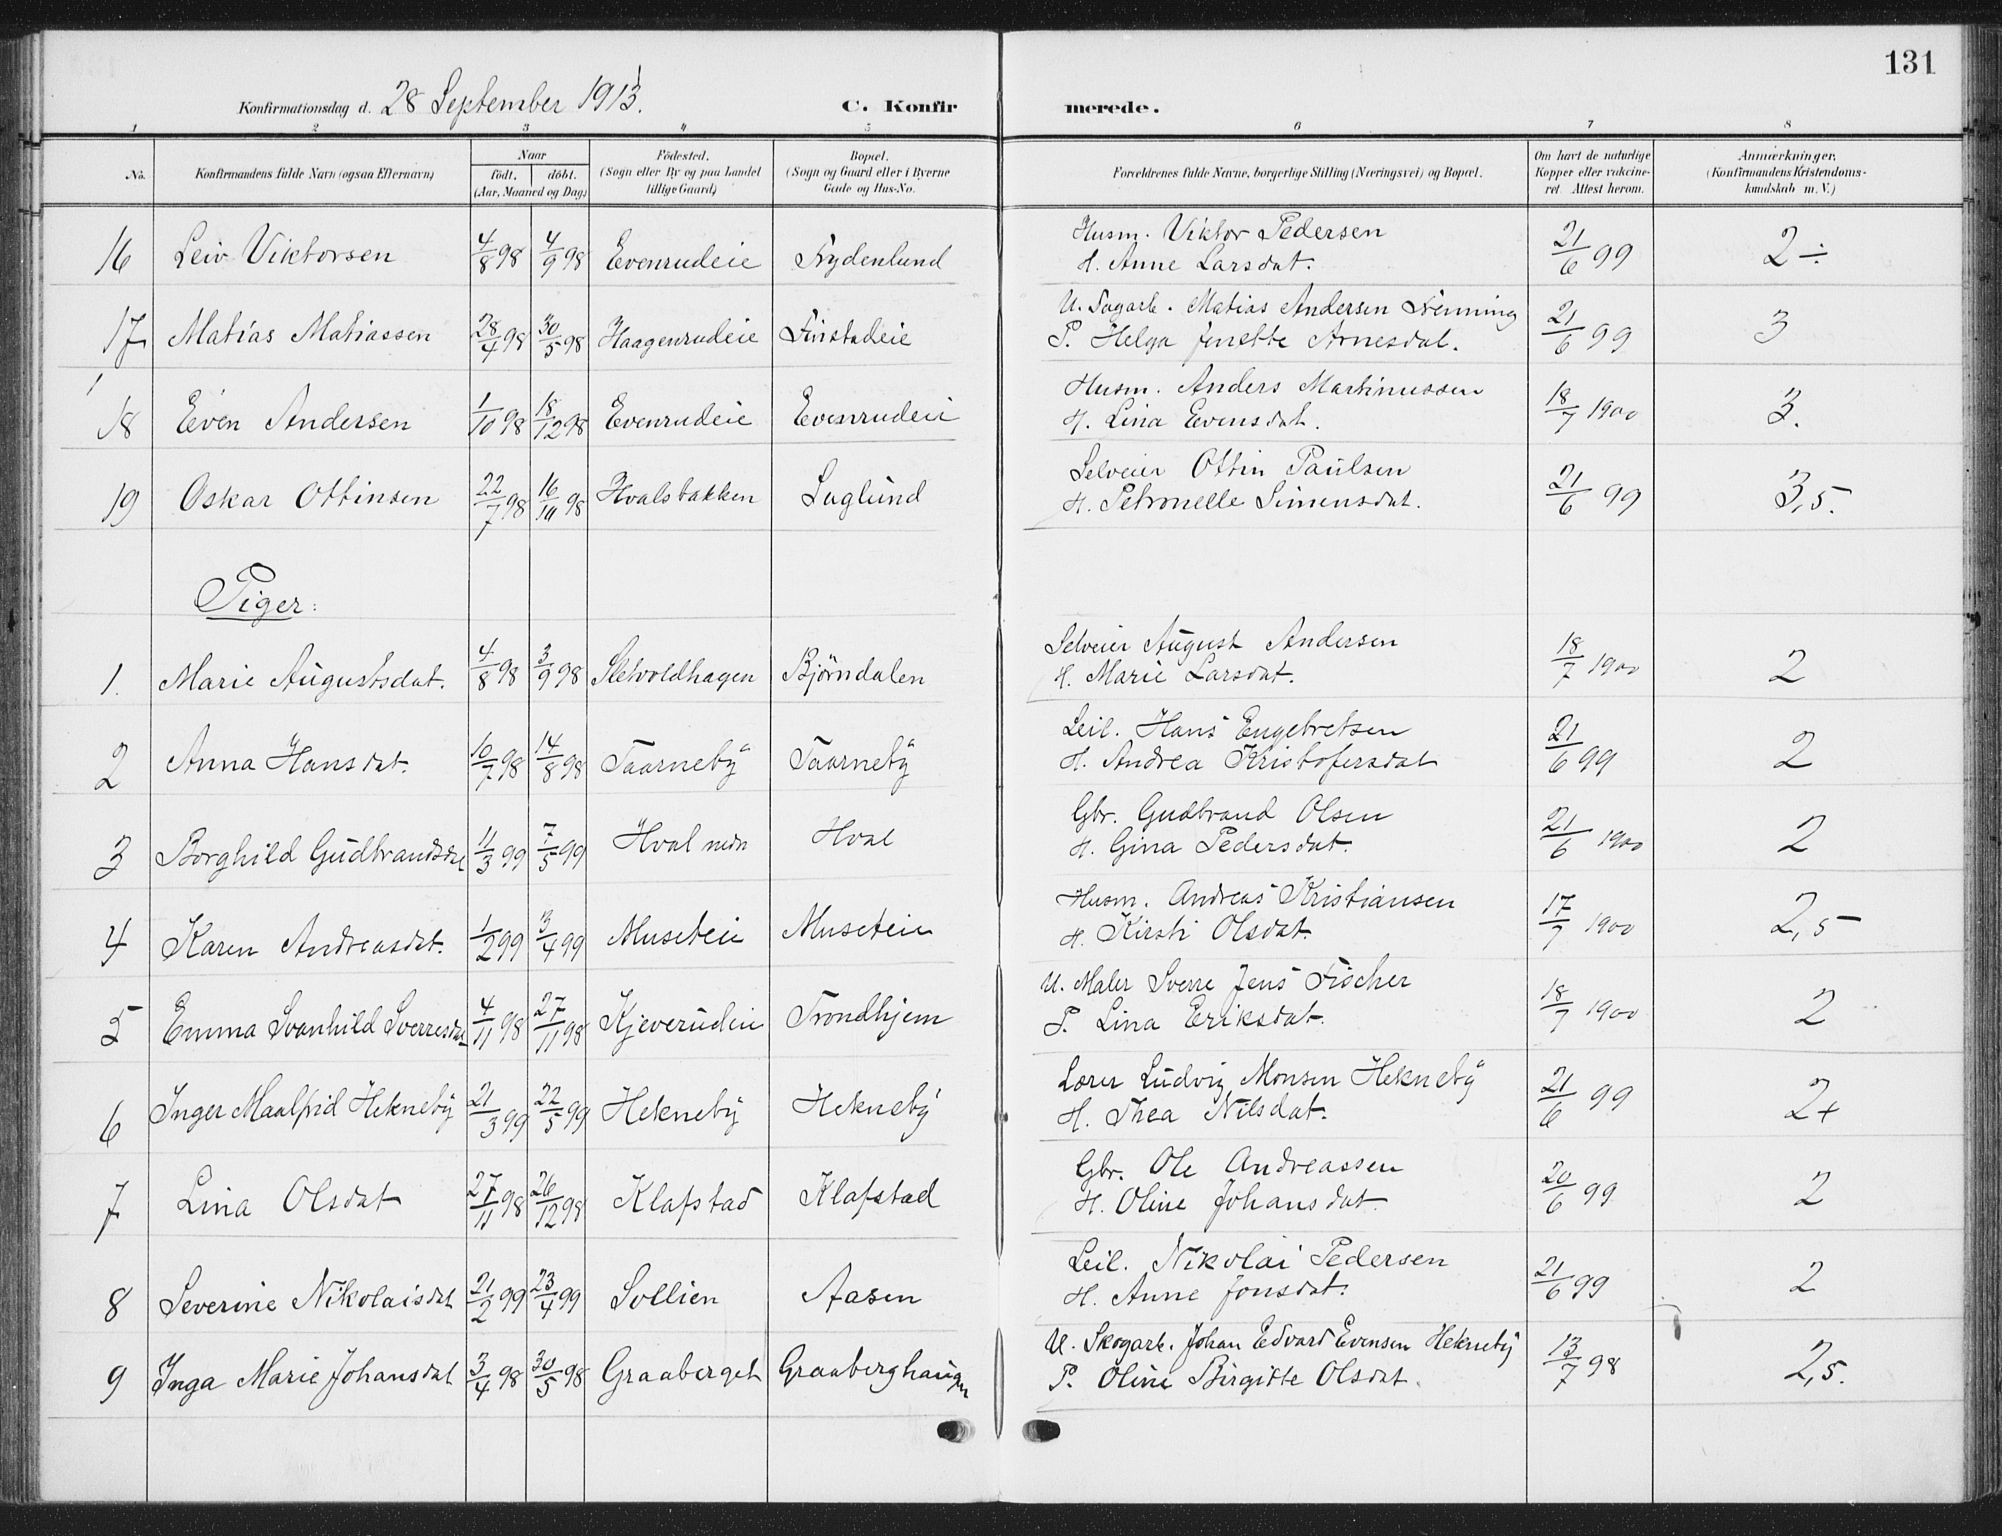 131
Konfirmationsdag d. 28 September 1913. C. Konfirmerede.
1 2 3 4 5 6 7 8
No. Konfirmandens fulde Navn (ogsaa Efternavn) Naar født. døbt. (Aar, Maaned og Dag) Fødested. (Sogn eller By og paa Landet tillige Gaard) Bopæl. (Sogn og Gaard eller i Byerne Gade og Hus-No. Forældrenes fulde Navne, borgerlige Stilling (Næringsvei) og Bopæl. Om havt de naturlige Kopper eller vakcineret. Attest herom. Anmærkninger. (Konfirmandens Kristendomskundskab m. V.)
16 Leiv Viktorsen 4/8 98 4/9 98 Evenrudeie Frydenlund Husm. Viktor Pedersen 21/6 99 2 ÷
H. Anne Larsdat.
17 Matias Matiassen 28/4 98 30/5 98 Haagenrudeie Finstadeie U. Sagarb. Matias Andersen 21/6 99 3
P. Helga Jenette Arnesdat.
18 Even Andersen 1/10 98 18/12 98 Evenrudeie Evenrudeie Husm. Anders Martinussen 18/7 1900 3.
H. Lina Evensdat.
19 Oskar Ottinsen 22/7 98 16/10 98 Hvalsbakken Laglund Selveier Ottin Paulsen 21/6 99 3,5.
H. Petronelle Simensdat.
Piger:
1. Marie Augustsdat. 4/8 98 3/9 98 Sletvoldhagen Bjørndalen Selveier August Andersen 18/7 1900 2
H. Marie Larsdat.
2 Anna Hansdat. 10/7 98 14/8 98 Taarneby Taarneby Leil. Hans Engebretsen 21/6 99 2
H. Andrea Kristofersdat
3 Borghild Gudbrandsdat 11/3 99 7/5 99 Hval nedn Hval Gbr. Gudbrand Olsen 21/6 1900 2
H. Gina Pedersdat.
4 Karen Andreasdat. 1/2 99 3/4 99 Museteie Museteie Husm. Andreas Kristiansen 17/7 1900 2,5
H. Kirsti Olsdat.
5 Emma Svanhild Sverresdat 4/11 98 27/11 98 Kjeverudeie Trondhjem U. Maler Sverre Jens Fischer 18/7 1900 2
P. Lina Eriksdat.
6 Inger Maalfrid Hekneby 21/3 99 22/5 99 Hekneby Hekneby Lærer Ludvig Monsen Hekneby 21/6 99 2+
H. Thea Nilsdat.
7 Lina Olsdat 27/11 98 26/12 98 Klafstad Klafstad Gbr. Ole Andreassen 20/6 99 2
H. Oline Johansdat.
8 Severine Nikolaisdat 21/2 99 23/4 99 Sollien Aasen Leil. Nikolai Pedersen 21/6 99 2
H. Anne Jonsdat.
9 Inga Marie Johansdat 3/4 98 30/5 98 Graaberget Graaberghaugen U. Skogarb. Johan Edvard Evensen Hekneby 13/7 98 2,5.
P. Oline Birgitte Olsdat.